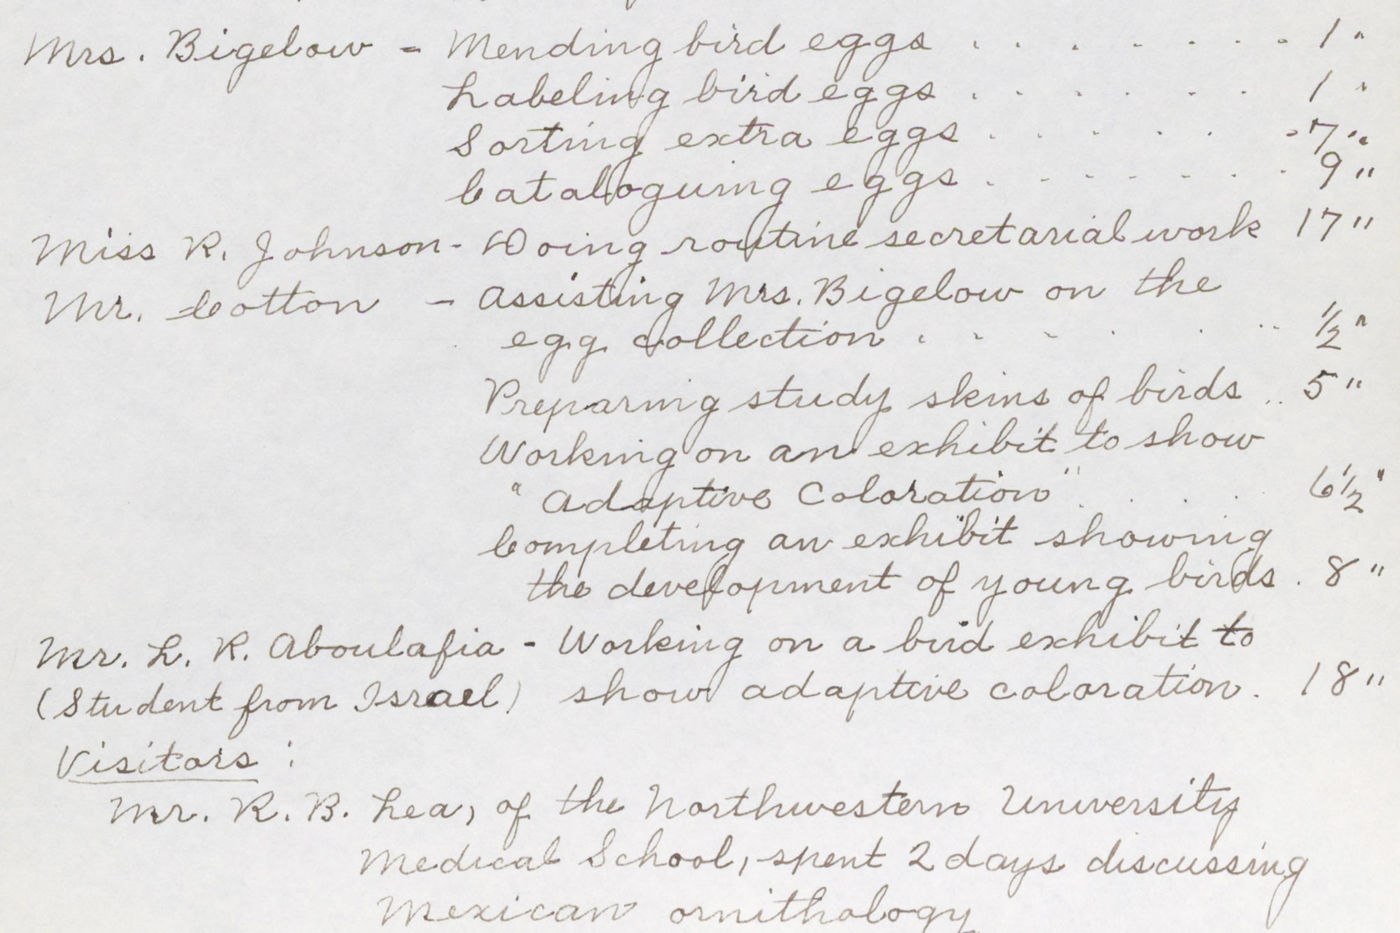 Mrs. Bigelow - Mending bird eggs . . . . . . . . 1 "
Labeling bird eggs . . . . . . . 1 "
Sorting extra eggs . . . . . . 7 "
Cataloguing eggs . . . . . . . 9 "
Miss R. Johnson - Doing routine secretarial work 17 "
Mr. Cotton - Assisting Mrs. Bigelow on the
egg collection . . . . . . . 1/2 "
Preparing study skins of birds .. 5 "
Working on an exhibit to show
"Adaptive Coloration" . . . . 6 1/2 "
Completing an exhibit showing
the development of young birds . 8 "
Mr. L. R. Aboulafia - Working on a bird exhibit to
(Student from Israel) show adaptive coloration. 18 "
Visitors :
Mr. R. B. Lea, of the Northwestern University
Medical School, spent 2 days discussing
Mexican ornithology